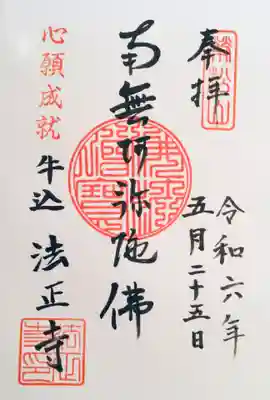 奉拝
令和六年
五月二十五日
南無阿弥陀佛
心願成就
牛込
法正寺